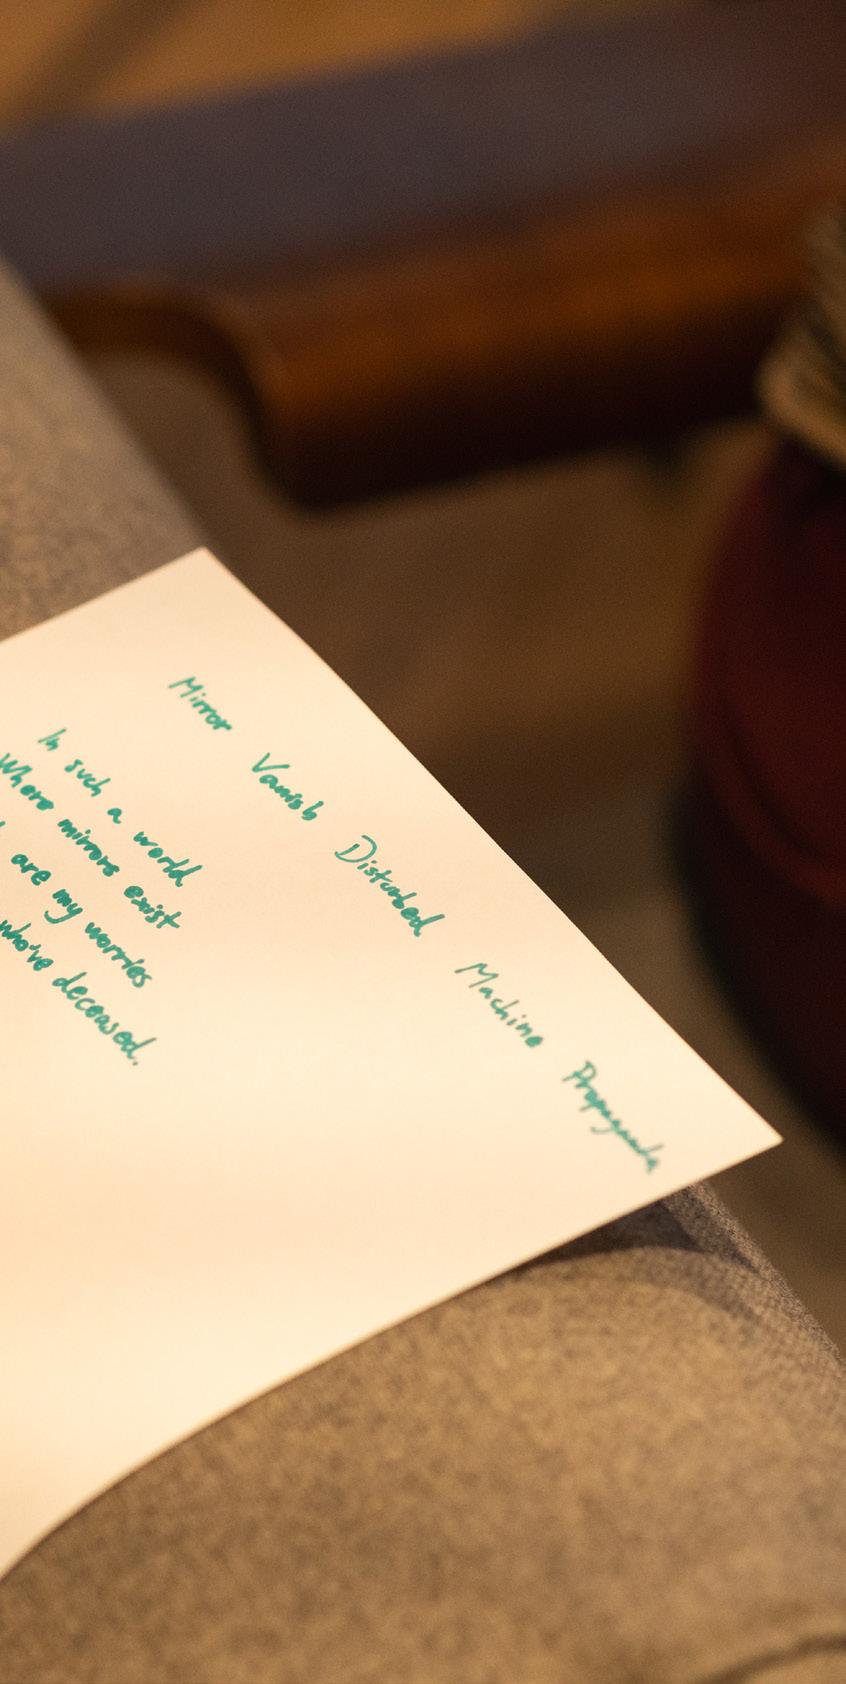 Mirror Vanish Disturbed Machine Propaganda
In such a world
Where mirrors exist
are my worries
who've deceased.